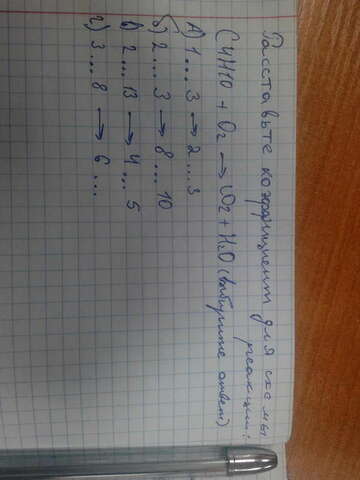 Расставьте коэффициент для схемы
реакции:
C4H10 + O2 → CO2 + H2O (выберите ответ)
А) 1 ... 3 → 2 ... 3
Б) 2 ... 3 → 8 ... 10
В) 2 ... 13 → 4 ... 5
Г) 3 ... 8 → 6 ...